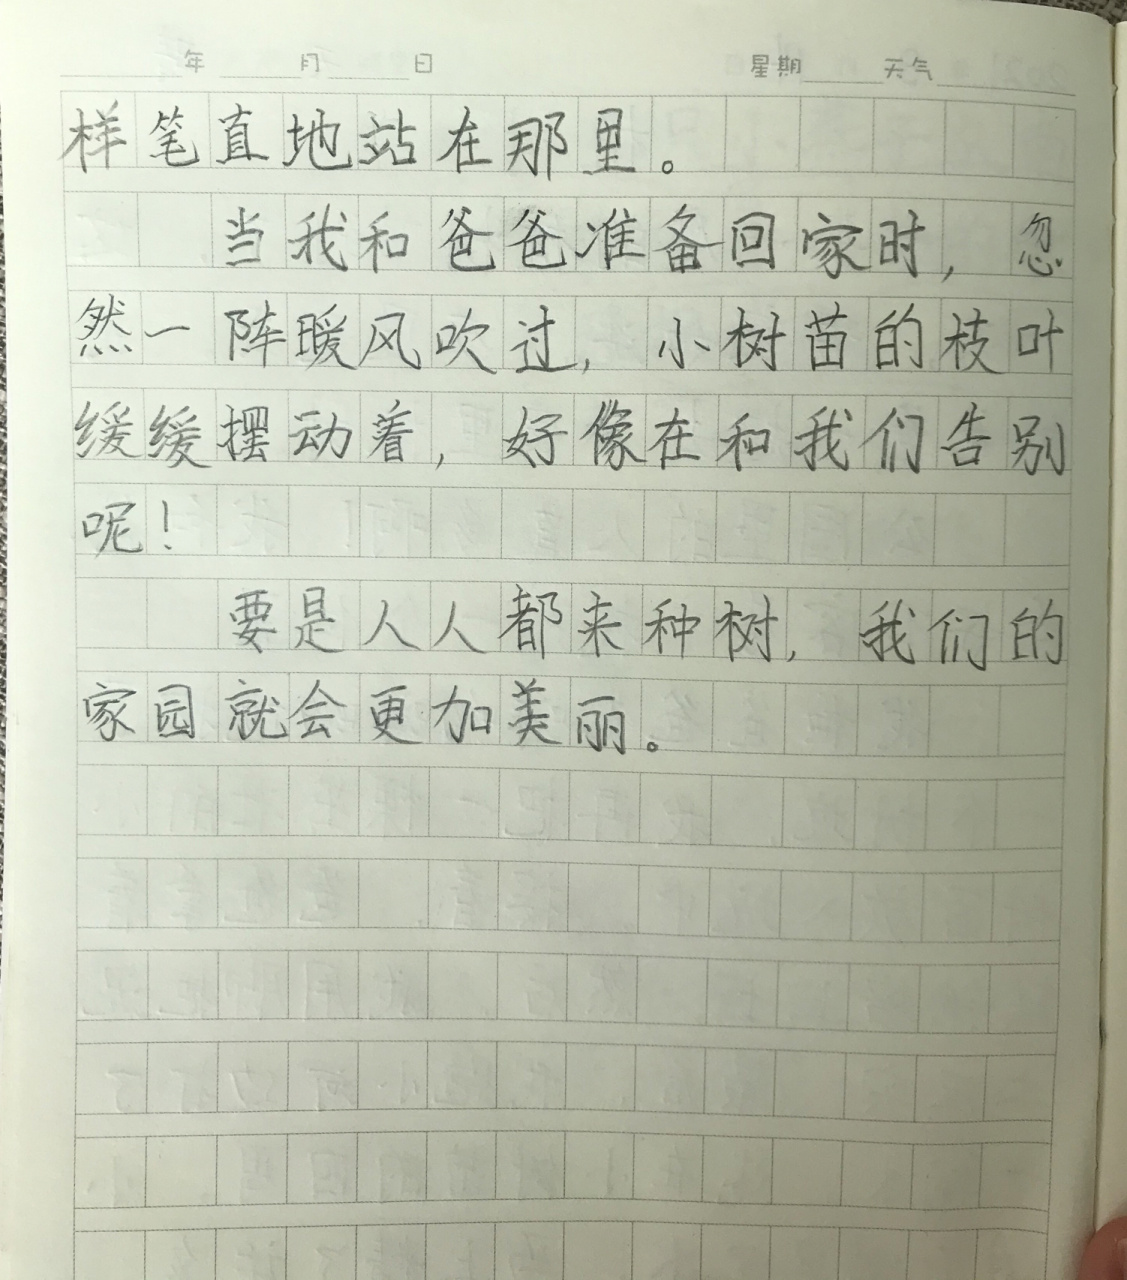 年 月 日 星期 天气
样笔直地站在那里。
当我和爸爸准备回家时，忽
然一阵暖风吹过，小树苗的枝叶
缓缓摆动着，好像在和我们告别
呢！
要是人人都来种树，我们的
家园就会更加美丽。